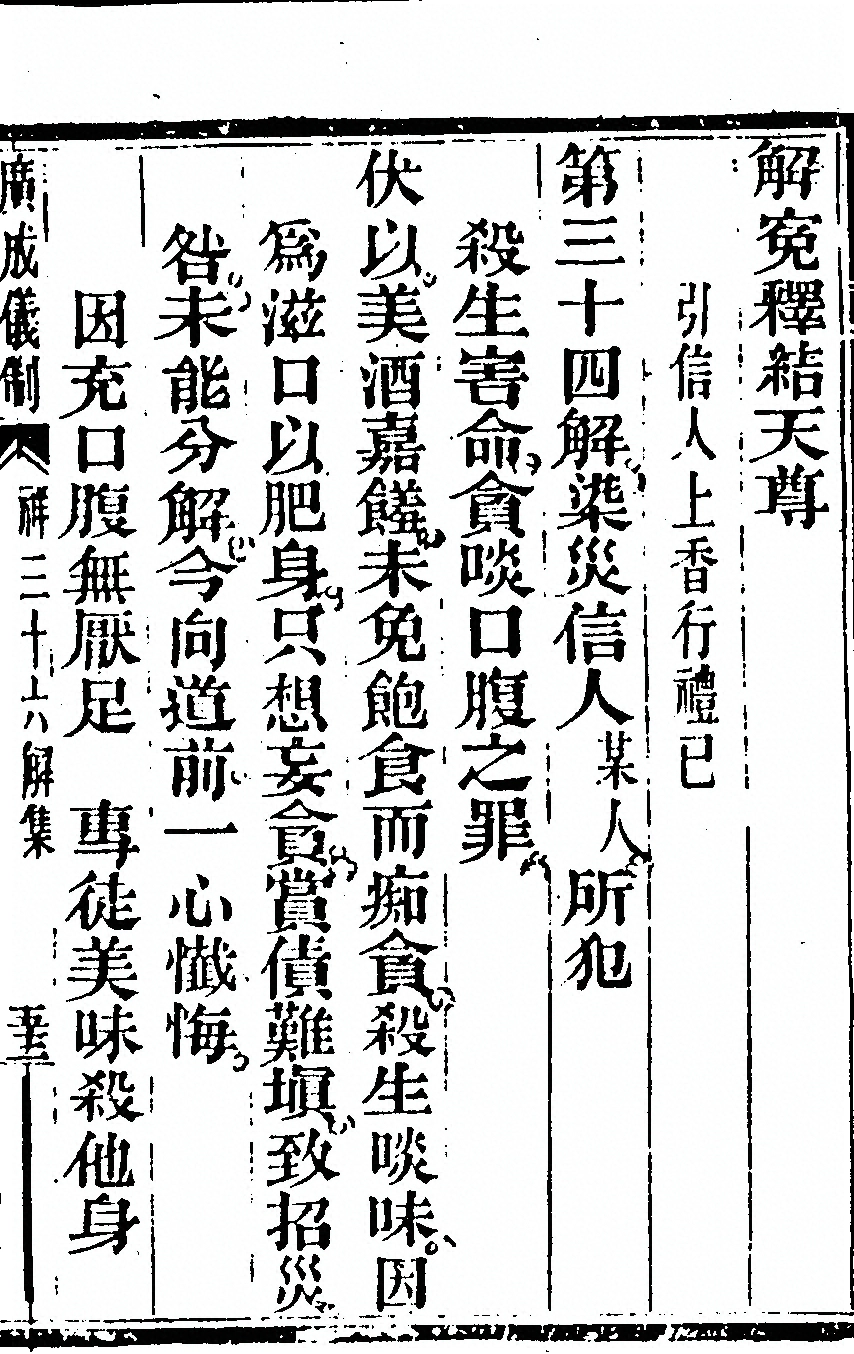 解寃釋結天尊
引信人上香行禮已
第三十四解染災信人某人所犯
殺生害命貪啖口腹之罪
伏以美酒嘉饈未免飽食而痴貪殺生啖味因
爲滋口以肥身只想妄貪賞債難塡致招災
咎未能分解今向道前一心懺悔
因充口腹無厭足　專徒美味殺他身
廣成儀制 祥三十六解集